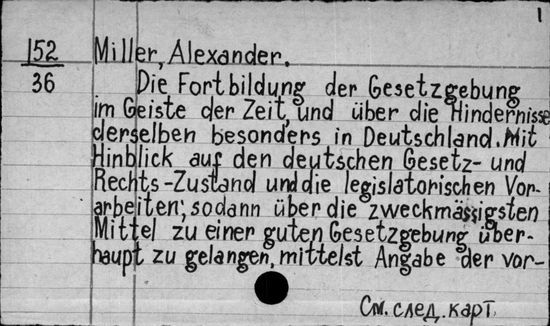 1
152 Miller, Alexander.
36 Die Fortbildung der Gesetzgebung
im Geiste der Zeit, und über die Hindernisse
derselben besonders in Deutschland. Mit
Hinblick auf den deutschen Gesetz- und
Rechts-Zustand und die legislatorischen Vor-
arbeiten; sodann über die zweckmässigsten
Mittel zu einer guten Gesetzgebung über-
haupt zu gelangen, mittelst Angabe der vor-
См. след. карт.